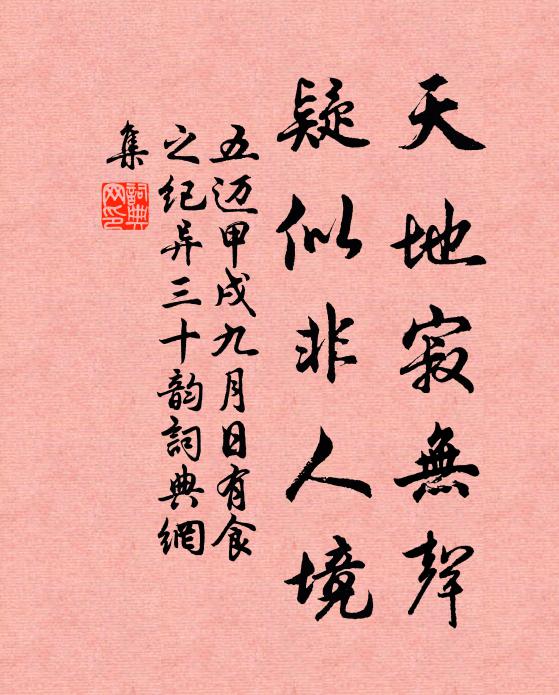 天地寂無聲
疑似非人境
五迈甲戌九月日有食
之纪异三十韵詞典網
集
詞典
网印